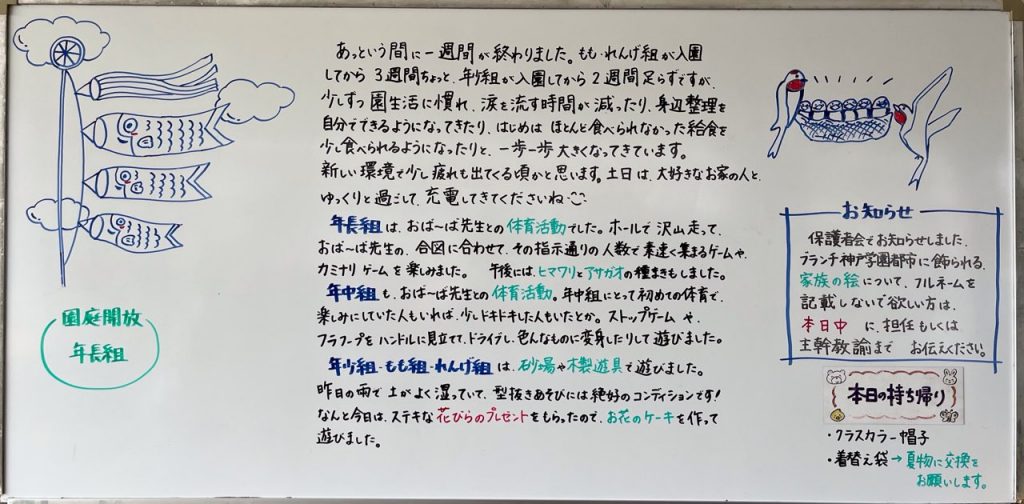 あっという間に一週間が終わりました。もも・れんげ組が入園
してから3週間ちょっと、年少組が入園してから2週間足らずですが、
少しずつ園生活に慣れ、涙を流す時間が減ったり、身辺整理を
自分でできるようになってきたり、はじめはほとんど食べられなかった給食を
少し食べられるようになったりと、一歩一歩大きくなってきています。
新しい環境で少し疲れも出てくる頃かと思います。土日は、大好きなお家の人と、
ゆっくりと過ごして、充電してきてくださいね
年長組は、おば〜ば先生との体育活動でした。ホールで沢山走って、
おば〜ば先生の、合図に合わせて、その指示通りの人数で素速く集まるゲームや、
カミナリゲームを楽しみました。 午後には、ヒマワリとアサガオの種まきもしました。
年中組も、おば〜ば先生との体育活動。年中組にとって初めての体育で、
楽しみにしていた人もいれば、少しドキドキした人もいたとか。ストップゲームや、
フラフープをハンドルに見立てて、ドライブし、色んなものに変身したりして遊びました。
年少組・もも組・れんげ組は、砂場や木製遊具で遊びました。
昨日の雨で土がよく湿っていて、型抜きあそびには絶好のコンディションです!
なんと今日は、ステキな花びらのプレゼントをもらったので、お花のケーキを作って
遊びました。
園庭開放
年長組
お知らせ
保護者会でお知らせしました、
ブランチ神戸学園都市に飾られる、
家族の絵について、フルネームを
記載しないで欲しい方は、
本日中に、担任もしくは
主幹教諭までお伝えください。
本日の持ち帰り
・クラスカラー帽子
・着替え袋→夏物に交換を
お願いします。